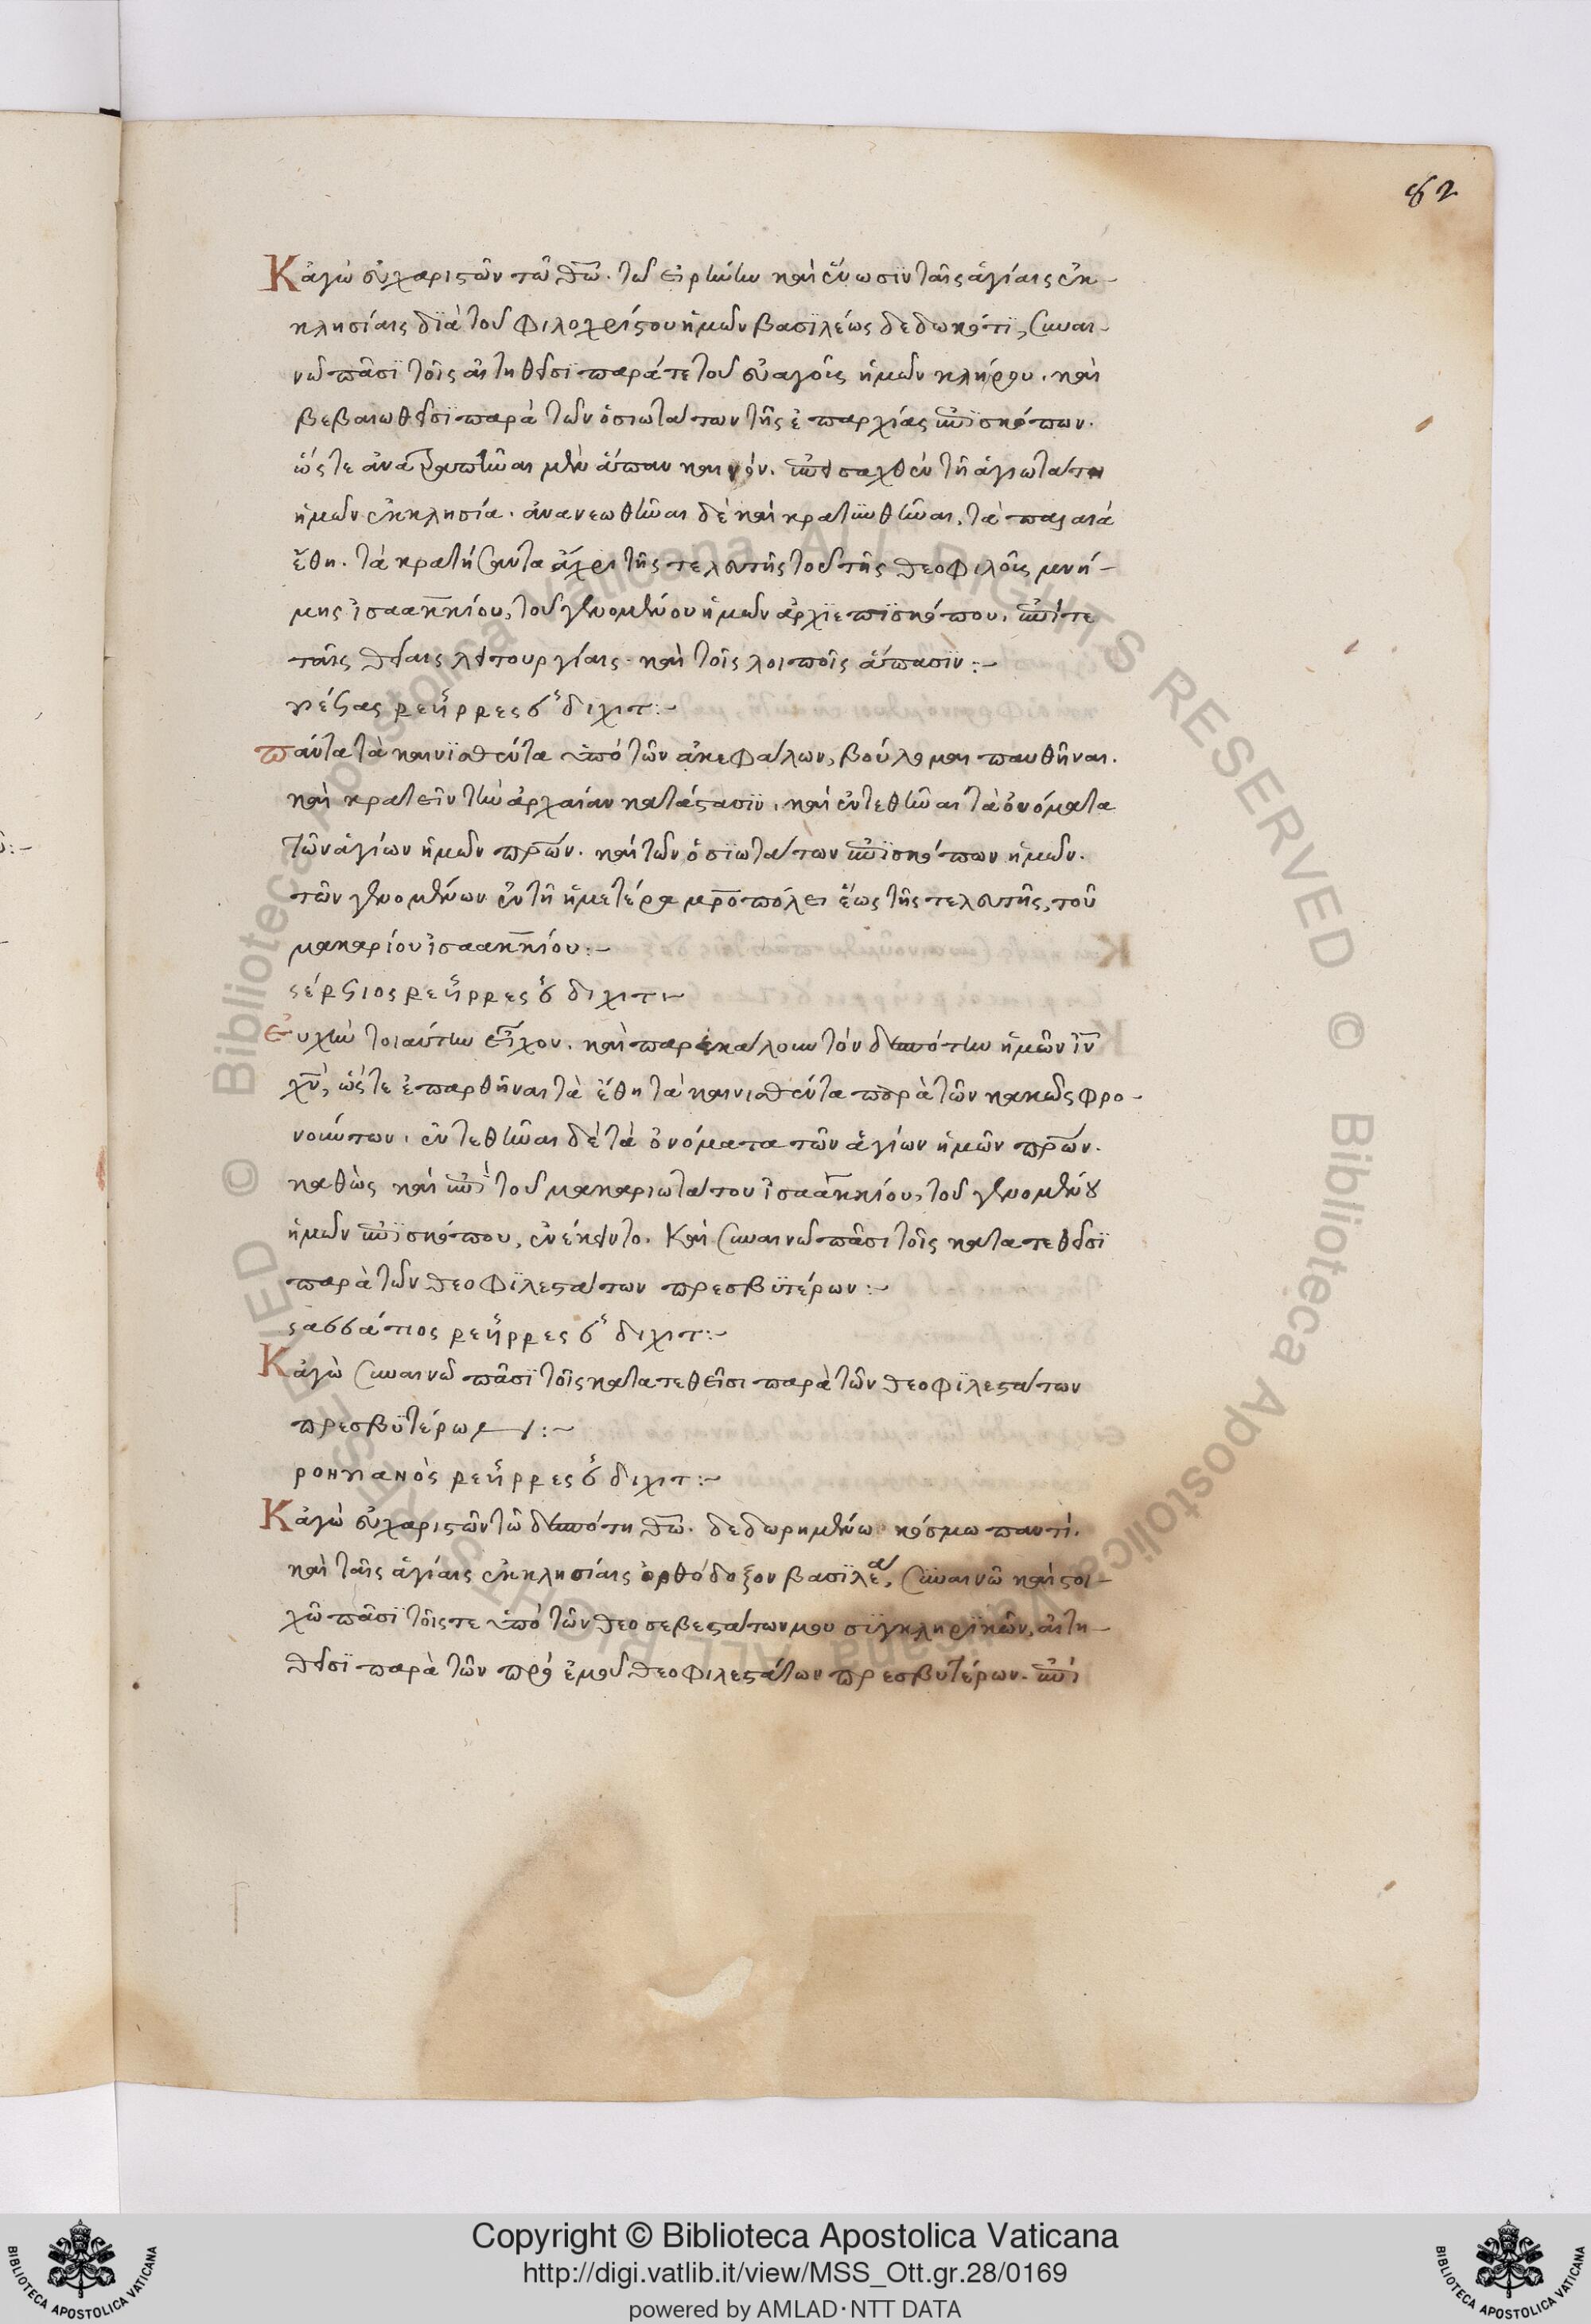 82
Κἀγὼ εὐχαριστῶν τῶ θ͞ω. τῶ εἰρήνην καὶ ἕνωσϊν ταῖς ἁγίαις ἐκ-
κλησίαις δϊὰ τοῦ φιλοχρίστου ἡμῶν βασϊλέως δεδωκότϊ, συναι-
νῶ πᾶσϊ τοῖς αἰτηθεῖσϊ παρά τε τοῦ εὐαγοῦς ἡμῶν κλήρου. καὶ
βεβαιωθεῖσϊ παρὰ τῶν ὁσιωτάτων τῆς ἐπαρχίας ἐπϊσκόπων.
ὥστε ἀνατραπῆναι μὲν ἅπαν καινόν. ἐπεισαχθὲν τῆ ἁγιωτάτη
ἡμῶν ἐκκλησία. ἀνανεωθῆναι δὲ καὶ κρατϋνθῆναι, τὰ παλαιά
ἔθη. τὰ κρατήσαντα ἄχρι τῆς τελευτῆς τοῦ τῆς θεοφιλοῦς μνή-
μης ἰσαακκίου, τοῦ γενομένου ἡμῶν ἀρχϊεπϊσκόπου, ἐπί τε
ταῖς θείαις λειτουργίαις. καὶ τοῖς λοιποῖς ἅπασϊν:-
πάντα τὰ καινϊσθέντα ὑπὸ τῶν ἀκεφάλων, βούλομαι παυθῆναι.
καὶ κρατεῖν τὴν ἀρχαίαν κατάστασϊν, καὶ ἐντεθῆναι τὰ ὀνόματα
τῶν ἁγίων ἡμῶν π͞ρων. καὶ τῶν ὁσϊωτάτων ἐπϊσκόπων ἡμῶν.
τῶν γενομένων ἐν τῆ ἡμετέρα μ͞ροπόλει ἕως τῆς τελευτῆς, τοῦ
μακαρίου ἰσαακκίου:-
ςέρGιος ρεῆρρες ϭ διχιτ:-
Εὐχὴν τοιαύτην εἶχον. καὶ παρεκάλουν τὸν δεσπότην ἡμῶν ι͞ν
χ͞ν, ὥστε ἐπαρθῆναι τὰ ἔθη τὰ καινισθέντα παρὰ τῶν κακῶς φρο-
νούντων. ἐντεθῆναι δὲ τὰ ὀνόματα τῶν ἁγίων ἡμῶν π͞ρων.
καθὼς καὶ ἐπὶ τοῦ μακαριωτάτου ἰσαακκίου, τοῦ γενομένου
ἡμῶν ἐπϊσκόπου, ἐνέκειντο. Καὶ συναινῶ πᾶσι τοῖς κατατεθεῖσϊ
παρὰ τῶν θεοφϊλεστάτων πρεσβϋτέρων:-
ςαϭϭάτιος ρεῆρρες ϭ διχιτ:-
Κἀγὼ συναινῶ πᾶσϊ τοῖς κατατεθεῖσι παρὰ τῶν θεοφϊλεστάτων
πρεσβϋτέρων:-
ρομμανὸς ρεῆρρες ϭ διχιτ:-
Κἀγὼ εὐχαριστῶν τῶ δεσπότη θ͞ω. δεδωρημένω κόσμω παντὶ.
καὶ ταῖς ἁγίαις ἐκκλησίαις ὀρθόδοξον βασϊλέα, συναινῶ καὶ στοι-
χῶ πᾶσϊ τοῖς τε ὑπὸ τῶν θεοσεβεστάτων μου σϋγκληρϊκῶν, αἰτη-
θεῖσϊ παρὰ τῶν πρὸ ἐμοῦ θεοφιλεστάτων πρεσβυτέρων. ἐπὶ
Copyright © Biblioteca Apostolica Vaticana
http://digi.vatlib.it/view/MSS_Ott.gr.28/0169
powered by AMLAD·NTT DATA
BIBLIOTECA APOSTOLICA VATICANA
BIBLIOTECA APOSTOLICA VATICANA
© Biblioteca Apostolica Vaticana ALL RIGHTS RESERVED © Biblioteca Apostolica Vaticana ALL RIGHTS RESERVED